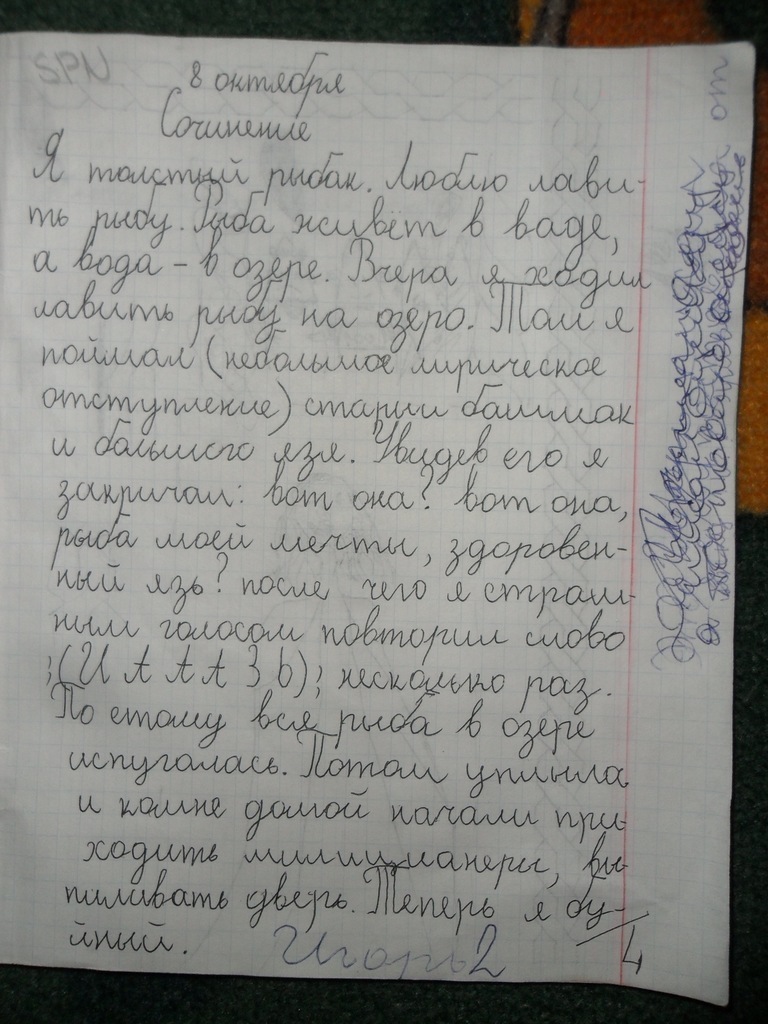 SPN
8 октября
Сочинение
Я толстый рыбак. Люблю лави-
ть рыбу. Рыба живёт в ваде,
а вода - в озере. Вчера я ходил
лавить рыбу на озеро. Там я
поймал (небольшое лирическое
отступление) старый башмак
и большого язя. Увидев его я
закричал: вот она? вот она,
рыба моей мечты, здоровен-
ный язь? после чего я страш-
ным голосом повторил слово
;(И А А А З Ь); несколько раз.
По етому вся рыба в озере
испугалась. Потом уплыла
и комне домой начали при-
ходить милицианеры, вы-
пиливать дверь. Теперь я бу-
йный.
Игорь 2
4
от